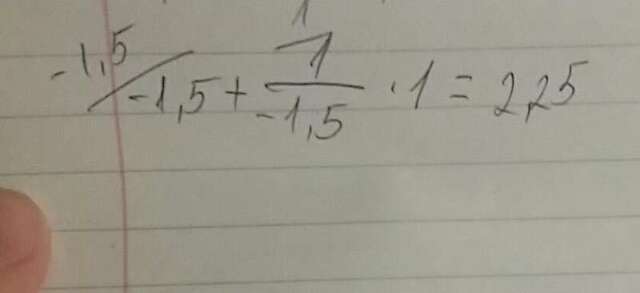 -1,5 / -1,5 + 1 / -1,5 · 1 = 2,25